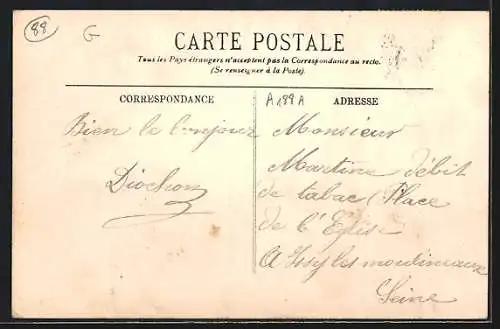 88
G
CARTE POSTALE
Tous les Pays étrangers n'acceptent pas la Correspondance au recto.
(Se renseigner à la Poste).
CORRESPONDANCE
Bien le bonjour
Diochon
A 199 A
ADRESSE
Monsieur
Martine débit
de tabac (Place
de l'Eglise
A Issy les moulineaux
Seine